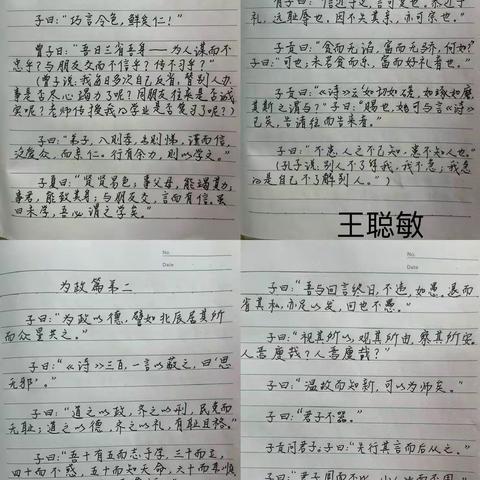 子曰：“巧言令色，鲜矣仁！”
曾子曰：“吾日三省吾身——为人谋而不
忠乎？与朋友交而不信乎？传不习乎？”
（曾子说：我每日多次自己反省，替别人办
事是否尽心竭力了呢？同朋友往来是否诚
实呢？老师传授我的学业是否复习了呢？）
子曰：“弟子，入则孝，出则悌，谨而信，
泛爱众，而亲仁。行有余力，则以学文。”
子夏曰：“贤贤易色；事父母，能竭其力；
事君，能致其身；与朋友交，言而有信。虽
曰未学，吾必谓之学矣。”
礼，远耻辱也，因不失其亲，亦可宗也。”
子贡曰：“贫而无谄，富而无骄，何如？”
子曰：“可也；未若贫而乐，富而好礼者也。”
子贡曰：“《诗》云：‘如切如磋，如琢如磨’，
其斯之谓与？”子曰：“赐也，始可与言《诗》
已矣，告诸往而知来者。”
子曰：“不患人之不己知，患不知人也。”
（孔子说：别人不了解我，我不急；我急
的是自己不了解别人。）
王聪敏
No.
Date
为政篇第二
子曰：“为政以德，譬如北辰居其所
而众星共之。”
子曰：“《诗》三百，一言以蔽之，曰‘思
无邪’。”
子曰：“道之以政，齐之以刑，民免而
无耻；道之以德，齐之以礼，有耻且格。”
子曰：“吾十有五而志于学，三十而立，
四十而不惑，五十而知天命，六十而耳顺，
No.
Date
子曰：“吾与回言终日，不违，如愚。退而
省其私，亦足以发，回也不愚。”
子曰：“视其所以，观其所由，察其所安。
人焉廋哉？人焉廋哉？”
子曰：“温故而知新，可以为师矣。”
子曰：“君子不器。”
子贡问君子。子曰：“先行其言而后从之。”
子曰：“君子周而不比，小人比而不周。”